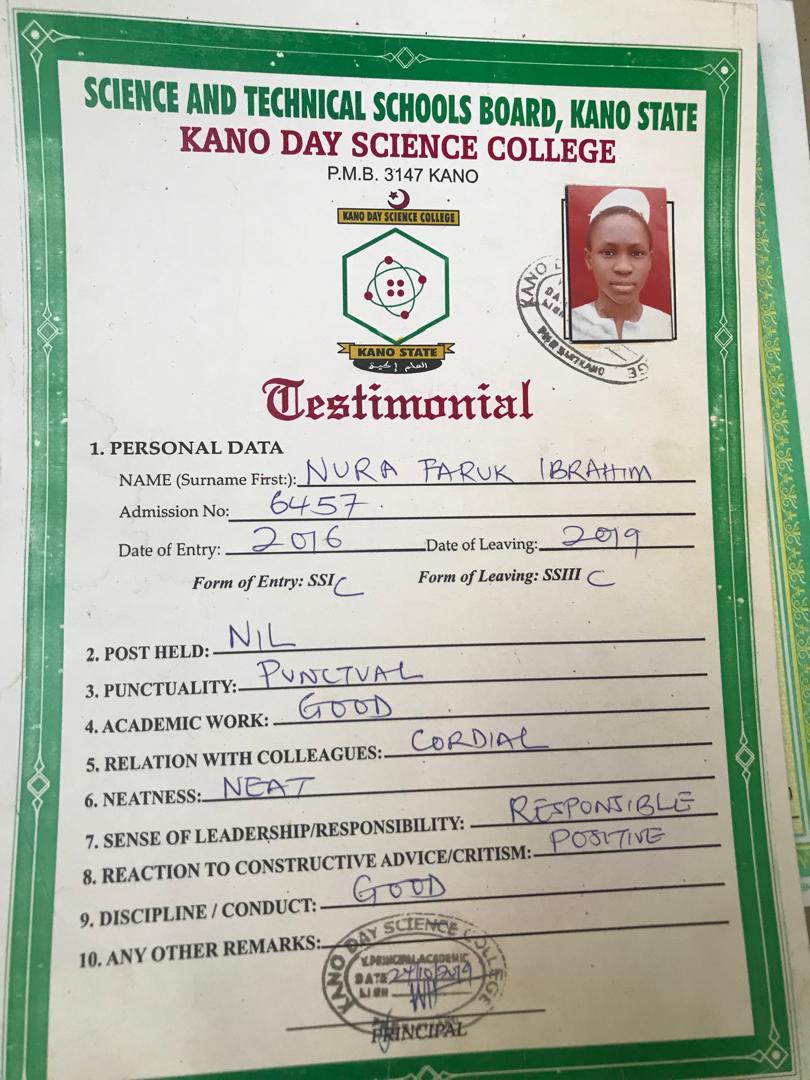 SCIENCE AND TECHNICAL SCHOOLS BOARD, KANO STATE
KANO DAY SCIENCE COLLEGE
P.M.B. 3147 KANO
KANO DAY SCIENCE COLLEGE
KANO STATE
Testimonial
1. PERSONAL DATA
NAME (Surname First:): NURA FARUK IBRAHIM
Admission No: 6457
Date of Entry: 2016 Date of Leaving: 2019
Form of Entry: SSI C Form of Leaving: SSIII C
2. POST HELD: NIL
3. PUNCTUALITY: PUNCTUAL
4. ACADEMIC WORK: GOOD
5. RELATION WITH COLLEAGUES: CORDIAL
6. NEATNESS: NEAT
7. SENSE OF LEADERSHIP/RESPONSIBILITY: RESPONSIBLE
8. REACTION TO CONSTRUCTIVE ADVICE/CRITISM: POSITIVE
9. DISCIPLINE / CONDUCT: GOOD
10. ANY OTHER REMARKS:
KANO DAY SCIENCE COLLEGE
V.PRINCIPAL ACADEMIC
DATE 24/10/2019
SIGN
PRINCIPAL